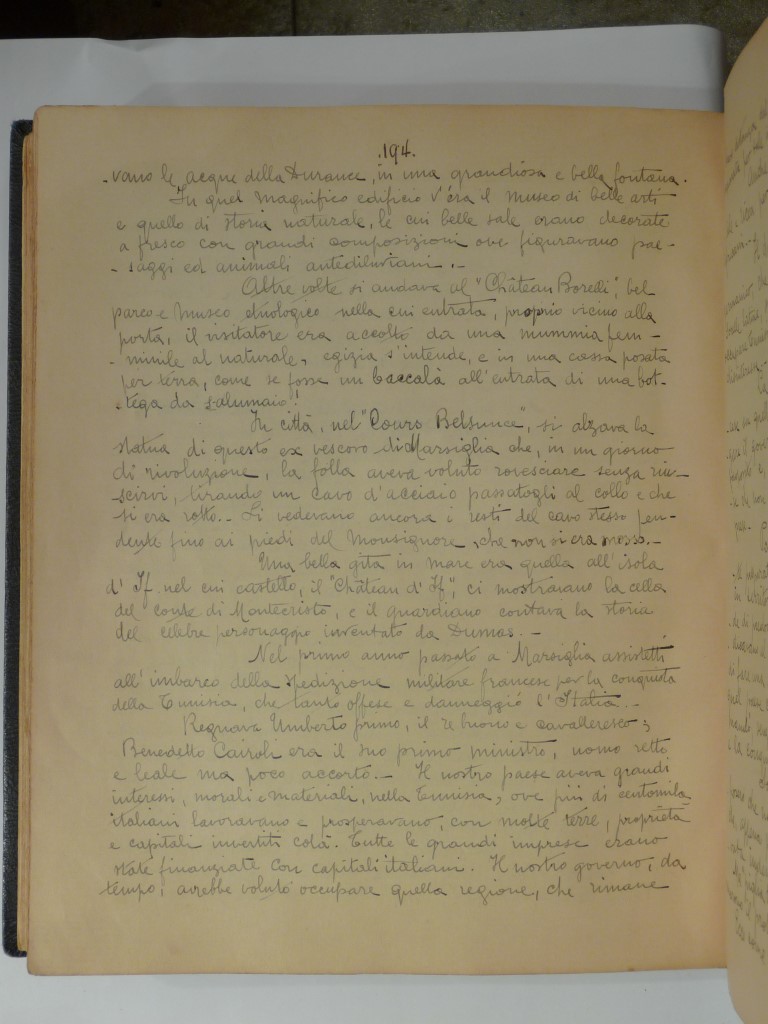 .194.
-vano le acque della Durance, in una grandiosa e bella fontana.
In quel magnifico edificio v'era il museo di belle arti
e quello di storia naturale, le cui belle sale erano decorate
a fresco con grandi composizioni ove figuravano pae-
-saggi ed animali antediluviani.-
Altre volte si andava al "Château Borelli", bel
parco e museo etnologico nella cui entrata, proprio vicino alla
porta, il visitatore era accolto da una mummia fem-
-minile al naturale, egizia s'intende, e in una cassa posata
per terra, come se fosse un baccalà all'entrata di una bot-
-tega da salumaio!
In città, nel "Cours Belsunce", si alzava la
statua di questo ex vescovo di Marsiglia che, in un giorno
di rivoluzione, la folla aveva voluto rovesciare senza riu-
scirvi, tirando un cavo d'acciaio passatogli al collo e che
si era rotto.- Si vedevano ancora i resti del cavo stesso pen-
dente fino ai piedi del Monsignore, che non si era mosso.-
Una bella gita in mare era quella all'isola
d'If nel cui castello, il "Château d'If", ci mostravano la cella
del conte di Montecristo, e il guardiano contava la storia
del celebre personaggio inventato da Dumas.-
Nel primo anno passato a Marsiglia assistetti
all'imbarco della spedizione militare francese per la conquista
della Tunisia, che tanto offese e danneggiò l'Italia.-
Regnava Umberto primo, il re buono e cavalleresco;
Benedetto Cairoli era il suo primo ministro, uomo retto
e leale ma poco accorto.- Il nostro paese aveva grandi
interessi, morali e materiali, nella Tunisia, ove più di centomila
italiani lavoravano e prosperavano, con molte terre, proprietà
e capitali investiti colà. Tutte le grandi imprese erano
state finanziate con capitali italiani. Il nostro governo, da
tempo, avrebbe voluto occupare quella regione, che rimane